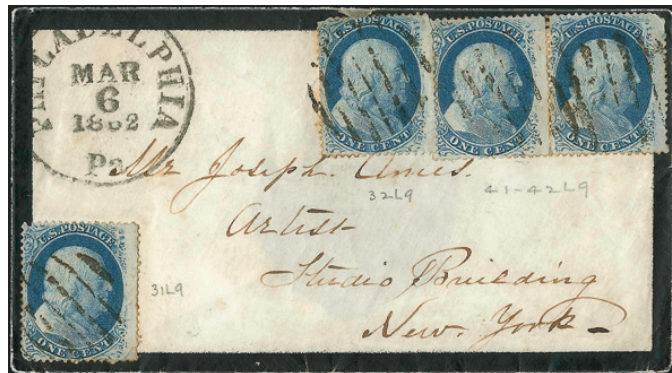 PHILADELPHIA
MAR
6
1862
Pa
U.S. POSTAGE
ONE CENT
U.S. POSTAGE
ONE CENT
U.S. POSTAGE
ONE CENT
Mr Joseph. Ames.
32L9
41-42L9
Artist
Studio Building
New. York-
U.S. POSTAGE
ONE CENT
31L9